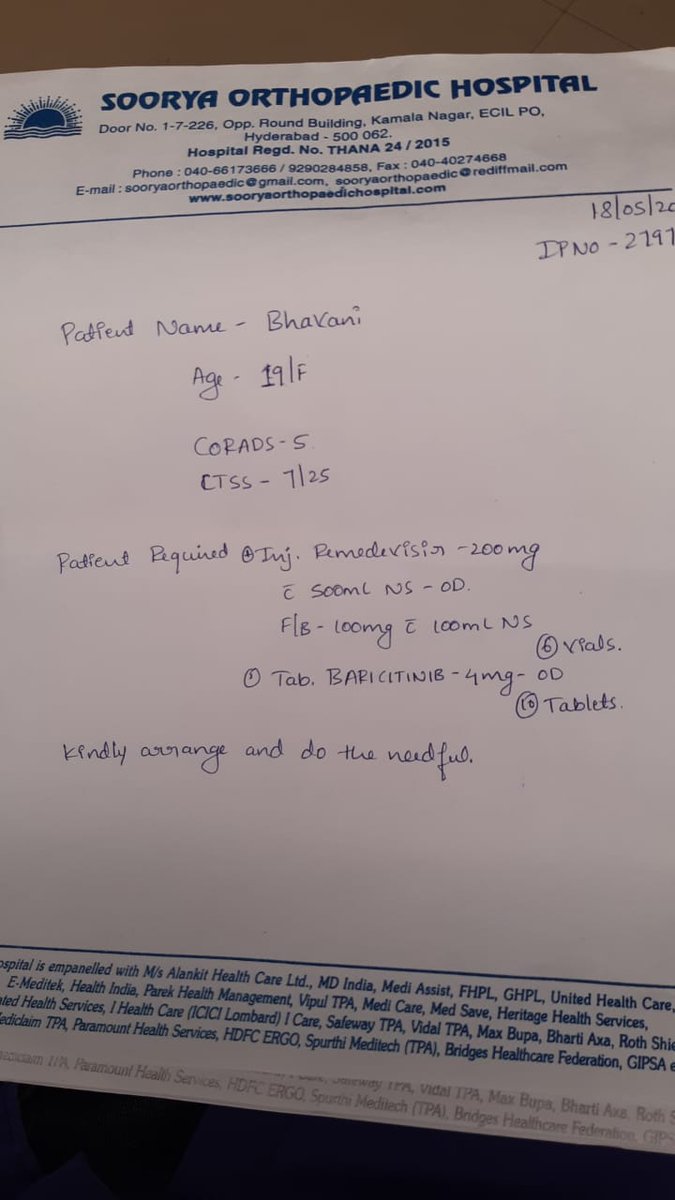 SOORYA ORTHOPAEDIC HOSPITAL
Door No. 1-7-226, Opp. Round Building, Kamala Nagar, ECIL PO,
Hyderabad - 500 062.
Hospital Regd. No. THANA 24 / 2015
Phone : 040-66173666 / 9290284858, Fax : 040-40274668
E-mail : sooryaorthopaedic@gmail.com, sooryaorthopaedic@rediffmail.com
www.sooryaorthopaedichospital.com
18/05/20
IPNO - 2797
Patient Name - Bhavani
Age - 19/F
CORADS - 5
CTSS - 7/25
Patient Required Inj. Remedevisir - 200mg
c̄ 500ml NS - OD.
F/B - 100mg c̄ 100ml NS
⑥ vials.
① Tab. BARICITINIB - 4mg - OD
⑩ Tablets.
kindly arrange and do the needful.
ospital is empanelled with M/s Alankit Health Care Ltd., MD India, Medi Assist, FHPL, GHPL, United Health Care,
E-Meditek, Health India, Parek Health Management, Vipul TPA, Medi Care, Med Save, Heritage Health Services,
ted Health Services, I Health Care (ICICI Lombard) I Care, Safeway TPA, Vidal TPA, Max Bupa, Bharti Axa, Roth Shie
ediclaim TPA, Paramount Health Services, HDFC ERGO, Spurthi Meditech (TPA), Bridges Healthcare Federation, GIPSA e
Safeway TPA, Vidal TPA, Max Bupa, Bharti Axa, Roth S
ediclaim TPA, Paramount Health Services, HDFC ERGO, Spurthi Meditech (TPA), Bridges Healthcare Federation, GIPS